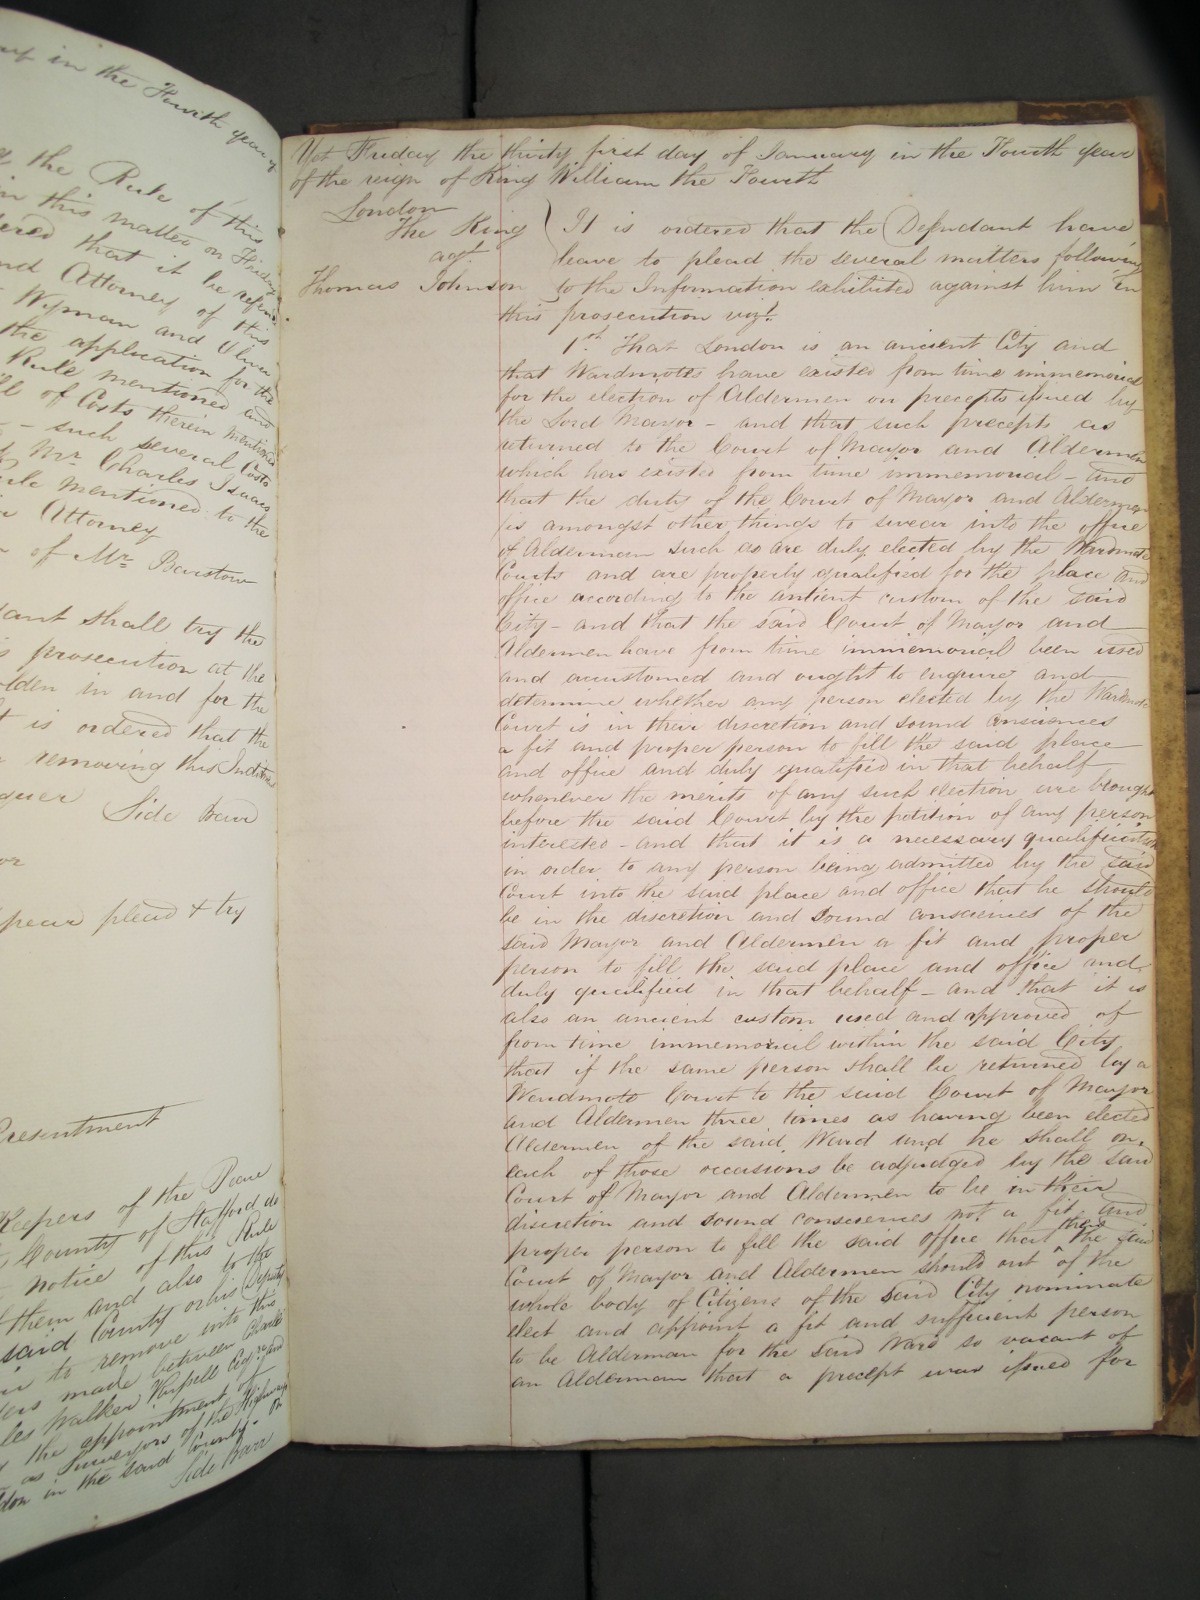 in the Fourth year of
the Rule of this
in this matter on Friday
ordered that it be referred
and Attorney of this
Wyman and
the application for the
Rule mentioned and
of Costs therein mentioned
such several Costs
Mr. Charles Isaacs
mentioned to the
Attorney
of Mr. Barstow
shall try the
prosecution at the
in and for the
is ordered that the
removing this Indictmt
Side Bar
plead & try
Presentment
Keepers of the Peace
County of Stafford do
notice of this Rule
them and also to the
said County or his Deputy
to remove into this
made between Charles
Walker
the appointment of
as Surveyors of the Highways
in the said County. On
Side Barr
Yet Friday the thirty first day of January in the Fourth year
of the reign of King William the Fourth
London
The King
agt.
Thomas Johnson
It is ordered that the Defendant have
leave to plead the several matters following
to the Information exhibited against him in
this prosecution vizt.
1st. That London is an ancient City and
that Wardmotes have existed from time immemorial
for the election of Aldermen on precepts issued by
the Lord Mayor - and that such precepts as
returned to the Court of Mayor and Aldermen
which has existed from time immemorial - and
that the duty of the Court of Mayor and Aldermen
is amongst other things to swear into the office
of Alderman such as are duly elected by the Wardmote
Courts and are properly qualified for the place and
office according to the antient custom of the said
City - and that the said Court of Mayor and
Aldermen have from time immemorial been used
and accustomed and ought to enquire and
determine whether any person elected by the Wardmote
Court is in their discretion and sound consciences
a fit and proper person to fill the said place
and office and duly qualified in that behalf
whenever the merits of any such election are brought
before the said Court by the petition of any person
interested - and that it is a necessary qualification
in order to any person being admitted by the said
Court into the said place and office that he should
be in the discretion and sound consciences of the
said Mayor and Aldermen a fit and proper
person to fill the said place and office and
duly qualified in that behalf - and that it is
also an ancient custom used and approved of
from time immemorial within the said City
that if the same person shall be returned by a
Wardmote Court to the said Court of Mayor
and Aldermen three times as having been elected
Aldermen of the said Ward and he shall on
each of those occasions be adjudged by the said
Court of Mayor and Aldermen to be in their
discretion and sound consciences not a fit and
proper person to fill the said office that then the said
Court of Mayor and Aldermen should out of the
whole body of Citizens of the said City nominate
elect and appoint a fit and sufficient person
to be Alderman for the said Ward so vacant of
an Alderman that a precept was issued for